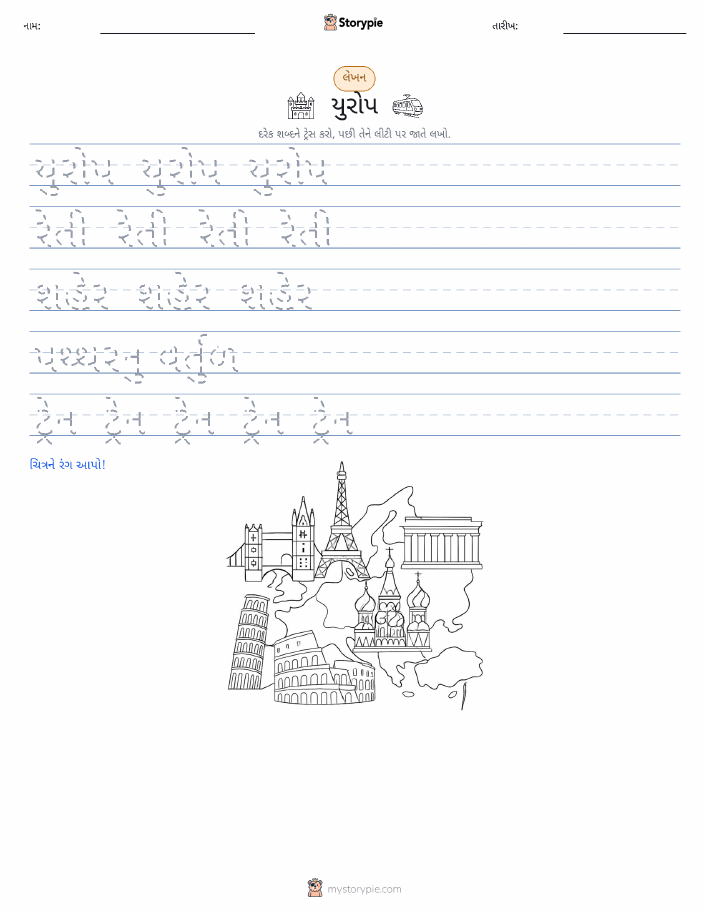 નામ: Storypie તારીખ:
લેખન
યુરોપ
દરેક શબ્દને ટ્રેસ કરો, પછી તેને લીટી પર જાતે લખો.
યુરોપ યુરોપ યુરોપ
રેતી રેતી રેતી રેતી
શહેર શહેર શહેર
પથ્થરનુ વર્તુળ
ટ્રેન ટ્રેન ટ્રેન ટ્રેન ટ્રેન
ચિત્રને રંગ આપો!
mystorypie.com